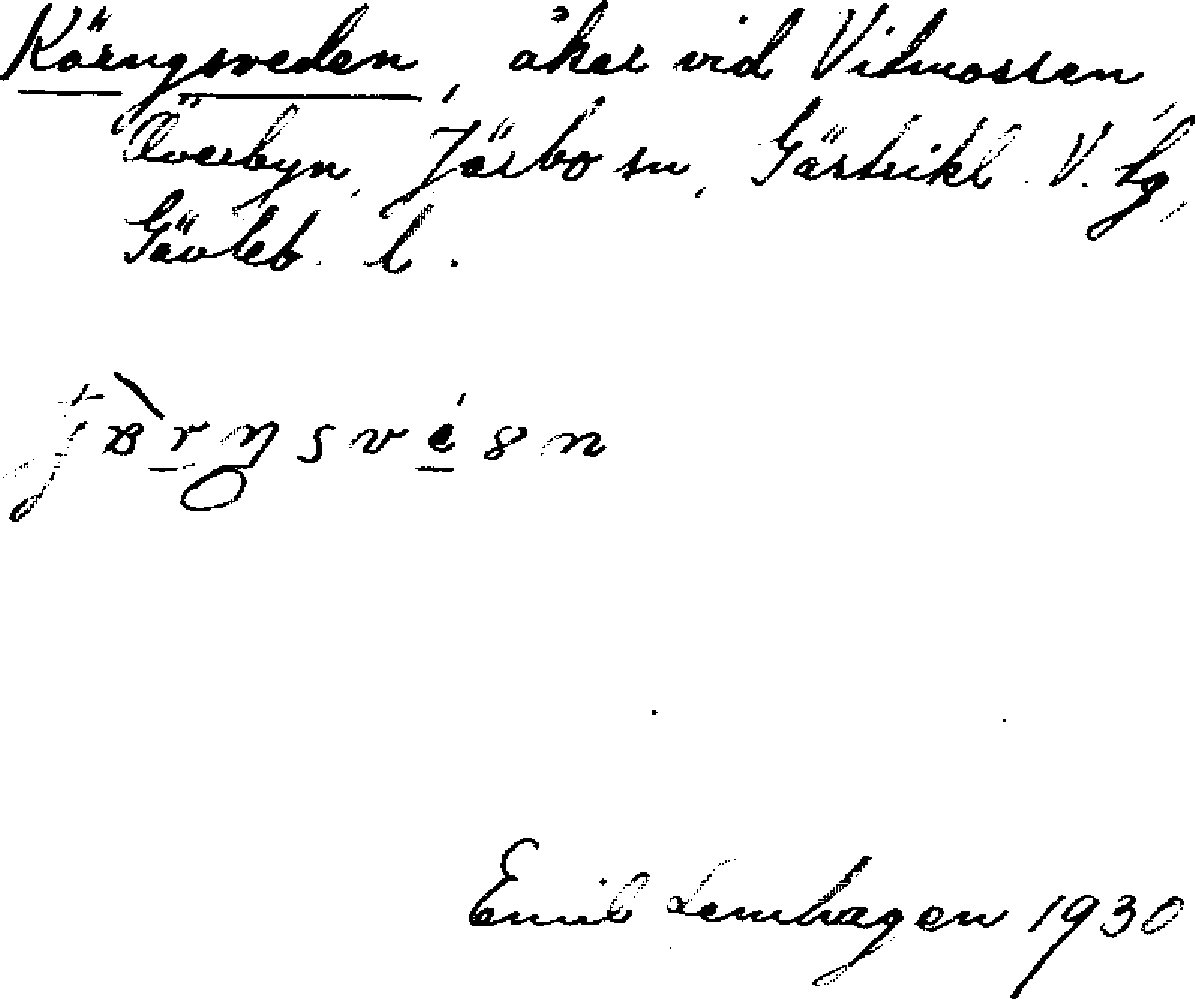 Körngsveden, åker vid Vitmossen,
Överbyn, Järbo sn, Gästrikl. V. tg,
Gävleb. l.
Emil Lemhagen 1930